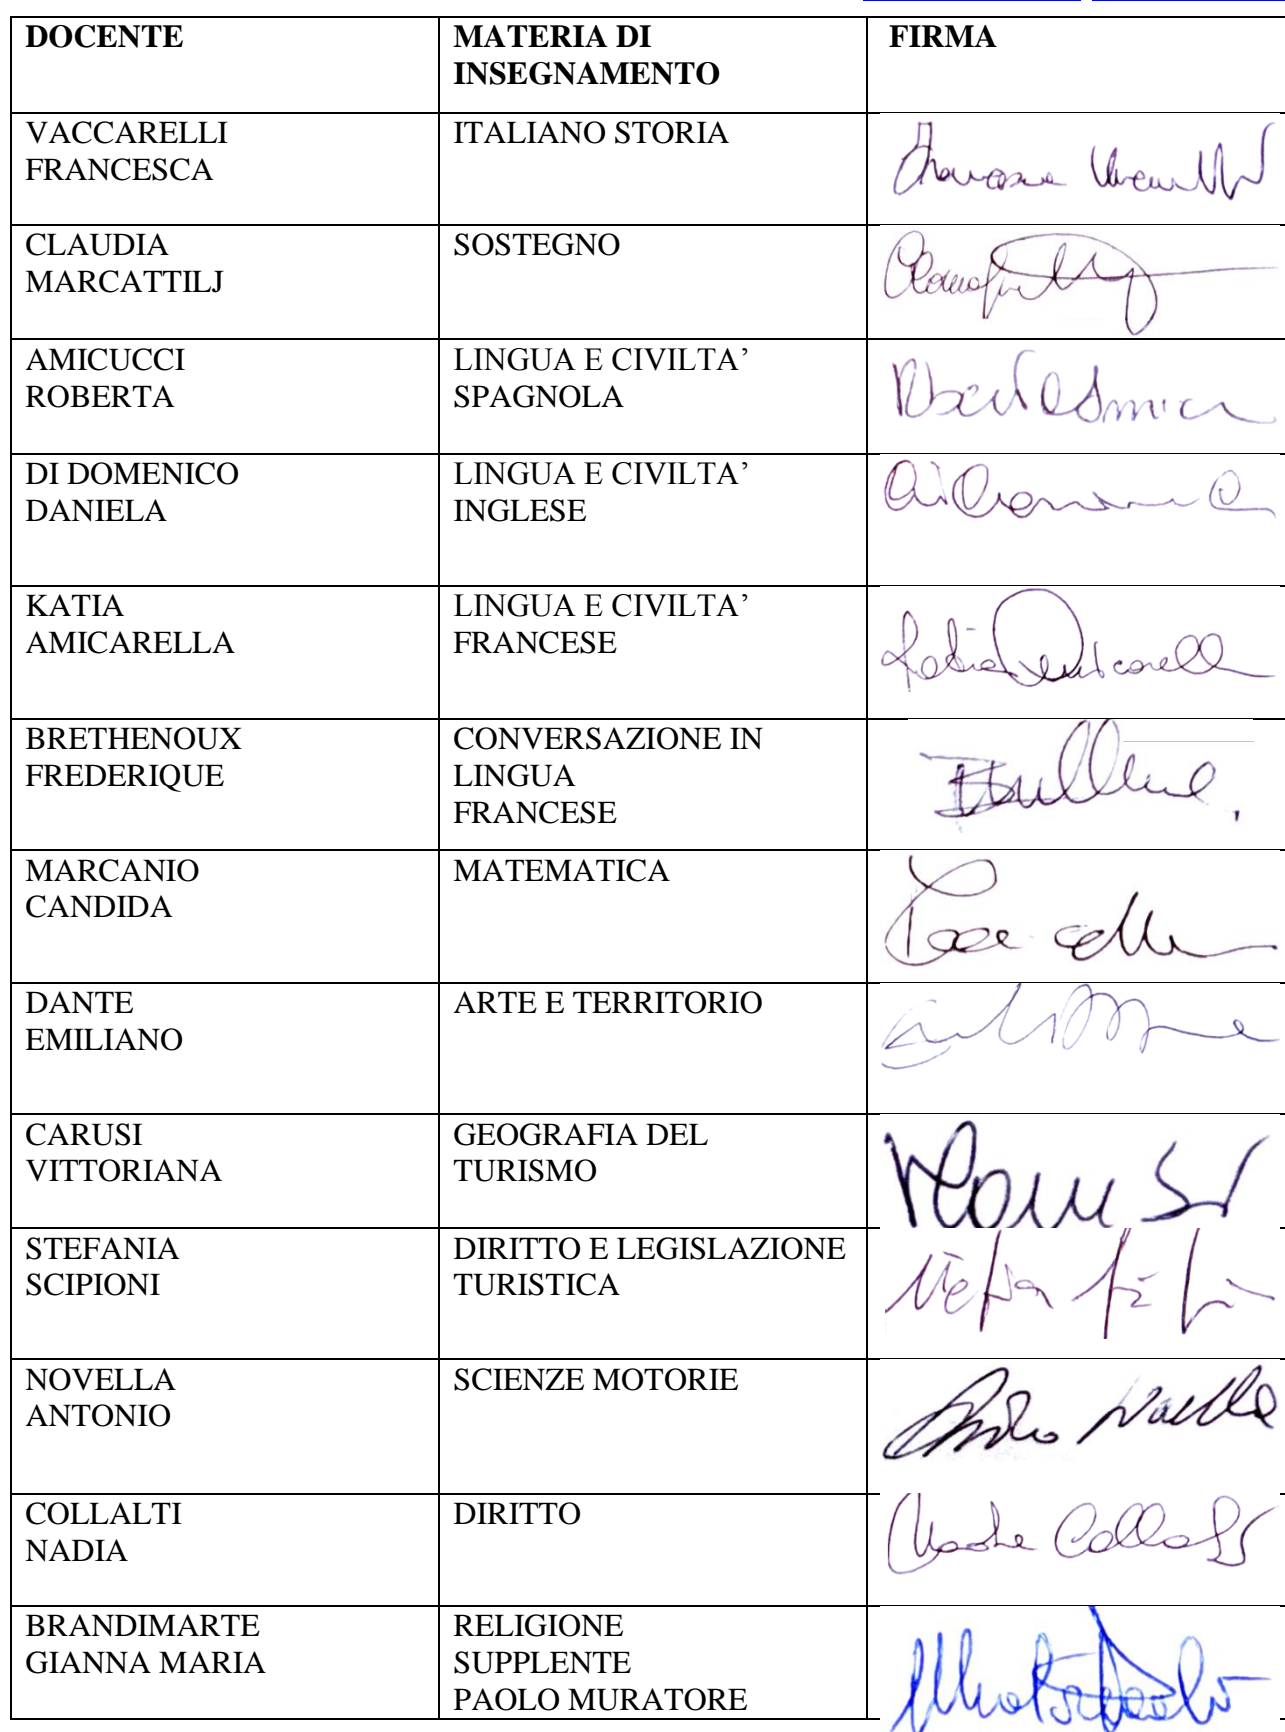 DOCENTE
MATERIA DI
INSEGNAMENTO
FIRMA
VACCARELLI
FRANCESCA
ITALIANO STORIA
CLAUDIA
MARCATTILJ
SOSTEGNO
AMICUCCI
ROBERTA
LINGUA E CIVILTA’
SPAGNOLA
DI DOMENICO
DANIELA
LINGUA E CIVILTA’
INGLESE
KATIA
AMICARELLA
LINGUA E CIVILTA’
FRANCESE
BRETHENOUX
FREDERIQUE
CONVERSAZIONE IN
LINGUA
FRANCESE
MARCANIO
CANDIDA
MATEMATICA
DANTE
EMILIANO
ARTE E TERRITORIO
CARUSI
VITTORIANA
GEOGRAFIA DEL
TURISMO
STEFANIA
SCIPIONI
DIRITTO E LEGISLAZIONE
TURISTICA
NOVELLA
ANTONIO
SCIENZE MOTORIE
COLLALTI
NADIA
DIRITTO
BRANDIMARTE
GIANNA MARIA
RELIGIONE
SUPPLENTE
PAOLO MURATORE